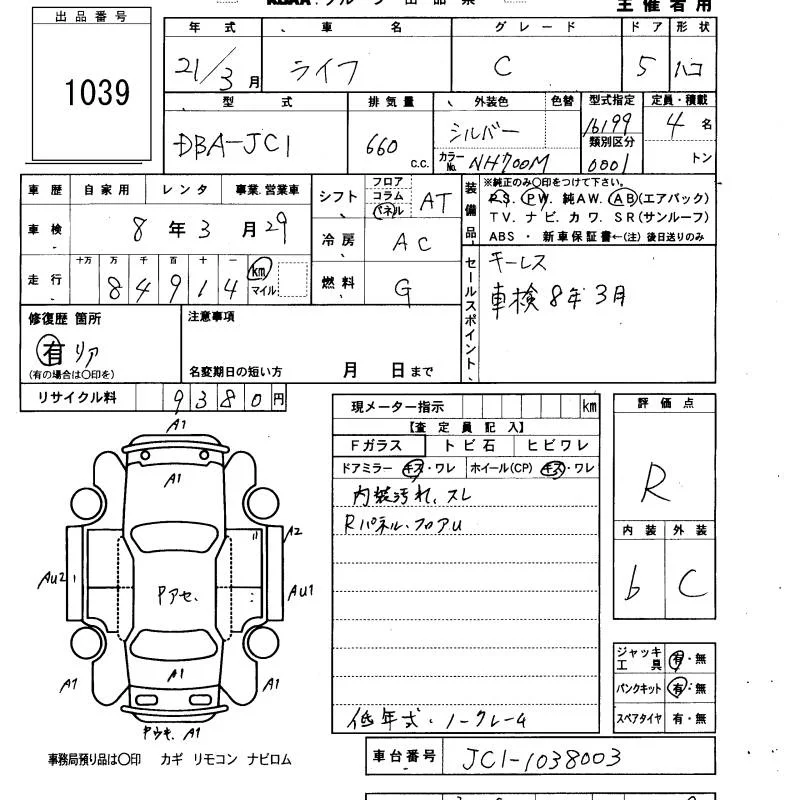 出品番号
1039
主催者用
年式 車名 グレード ドア 形状
21/3月 ライフ C 5 ハコ
型式 排気量 外装色 色替 型式指定 定員・積載
DBA-JC1 660 c.c. シルバー 16199 4名
カラーNo. NH700M 類別区分 0001 トン
車歴 自家用 レンタ 事業.営業車
車検 8年3月29
走行 十万 万 千 百 十 一
84914 km マイル
シフト フロア コラム パネル AT
冷房 AC
燃料 G
装備品
※純正のみ〇印をつけて下さい。
P.S. PW. 純AW. AB(エアバック)
TV. ナビ. カワ. SR(サンルーフ)
ABS ・ 新車保証書←(注) 後日送りのみ
セールスポイント
キーレス
車検8年3月
修復歴 箇所
有 リア
(有の場合は〇印を)
注意事項
名変期日の短い方 月 日まで
リサイクル料 9380円
現メーター指示 km
【査定員記入】
Fガラス トビ石 ヒビワレ
ドアミラー キズ・ワレ ホイール(CP) キズ・ワレ
内装汚れ、スレ
Rパネル.フロアU
低年式・ノークレーム
評価点
R
内装 外装
b C
ジャッキ工具 有・無
パンクキット 有・無
スペアタイヤ 有・無
A1
A1
A2
AU2
AU1
Pアセ.
A1
A1
A1
Pウモ. A1
事務局預り品は〇印 カギ リモコン ナビロム
車台番号 JC1-1038003